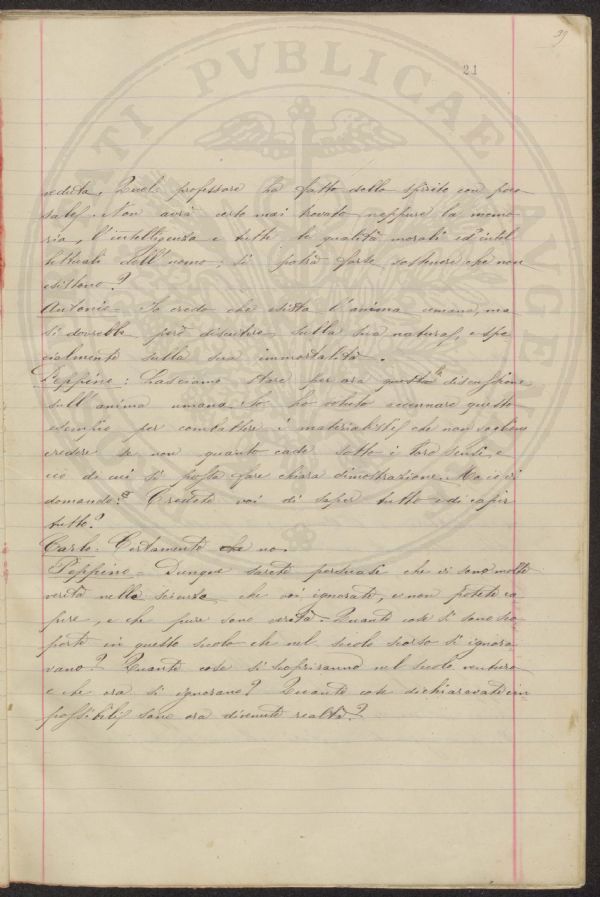 39
21
veduta. Quel professore ha fatto dello spirito con poco
sale. Non avrà certo mai trovato neppure la memo-
ria, l'intelligenza e tutte le qualità morali ed intel-
lettuali dell'uomo; si potrà forse sostenere che non
esistono?
Antonio - Io credo che esista l'anima umana, ma
si dovrebbe però discutere sulla sua natura, e spe-
cialmente sulla sua immortalità.
Peppino: Lasciamo stare per ora questa discussione
sull'anima umana. Io ho voluto accennare questo
esempio per combattere i materialisti che non vogliono
credere se non quanto cade sotto i loro sensi, e
ciò di cui si possa fare chiara dimostrazione. Ma io vi
domando: Credete voi di saper tutto e di capir
tutto?
Carlo: Certamente che no.
Peppino - Dunque sarete persuasi che vi sono molte
verità nella scienza che voi ignorate, e non potete ca-
pire, e che pure sono verità. Quante cose si sono sco-
perte in questo secolo che nel secolo scorso si ignora-
vano? Quante cose si scopriranno nel secolo venturo
e che ora si ignorano? Quante cose dichiarevate im-
possibili sono ora divenute realtà?
ATI PVBLICAE AVGEN